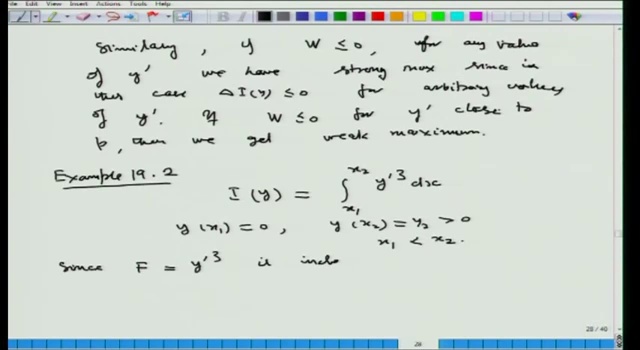 File Edit View Insert Actions Tools Help
Similary, if W ≤ 0, for any value
of y' we have strong max since in
this case ΔI(y) ≤ 0 for arbitrary values
of y'. If W ≤ 0 for y' close to
p, then we get weak maximum.
Example 19.2
I(y) = ∫_{x₁}^{x₂} y'³ dx
y(x₁) = 0, y(x₂) = y₂ > 0
x₁ < x₂.
Since F = y'³ is inde
28 / 40
28